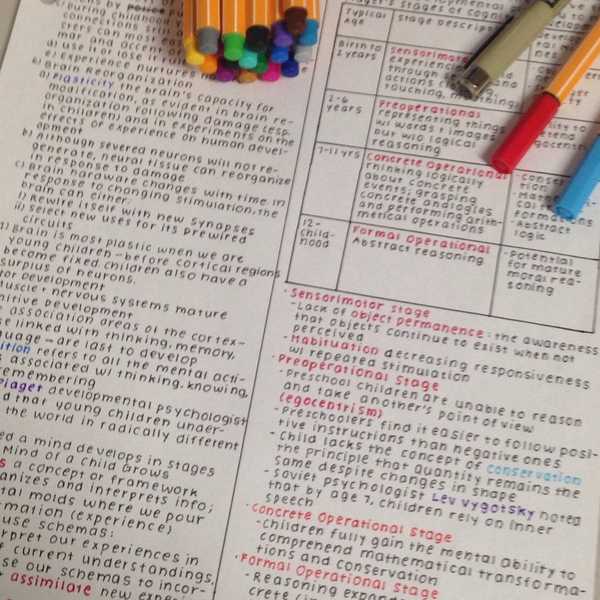 connection
Experience nurtures
Brain Reorganization
a) Plasticity the brain's capacity for
modification, as evident in brain re-
organization following damage (esp.
in children) and in experiments on the
effects of experience on human devel-
opment
b) Although severed neurons will not re-
generate, neural tissue can reorganize
in response to damage
c) Brain hardware changes with time in
response to changing stimulation, the
brain can either:
i) Rewire itself with new synapses
ii) Select new uses for its prewired
circuits
Brain is most plastic when we are
young children - before cortical regions
become fixed children also have a
surplus of neurons.
muscle + nervous systems mature
association areas of the cortex -
linked with thinking, memory,
are last to develop
refers to all the mental acti-
associated w/ thinking, knowing,
remembering
Piaget developmental psychologist
that young children under-
the world in radically different
a mind develops in stages
Mind of a child grows
a concept or framework
organizes and interprets info;
molds where we pour
(experience)
use schemas:
interpret our experiences in
current understandings,
use our schemas to incor-
assimilate new
Typical
Age
Stage
Birth to
2 years
Sensorimotor
through
touching,
2-6
years
Preoperational
representing things
w/ words + images
but w/o logical
reasoning
7-11 yrs
Concrete Operational
Thinking logically
about concrete
events; grasping
concrete analogies
and performing arith-
metical operations
formations
- Abstract
logic
12-
child-
hood
Formal Operational
Abstract reasoning
- Potential
for mature
moral rea-
soning
· Sensorimotor Stage
- Lack of object permanence: the awareness
that objects continue to exist when not
perceived
- Habituation decreasing responsiveness
w/ repeated stimulation
· Preoperational Stage
- Preschool children are unable to reason
and take another's point of view
(egocentrism)
- Preschoolers find it easier to follow posi-
tive instructions than negative ones
- Child lacks the concept of conservation
the principle that quantity remains the
same despite changes in shape
- Soviet psychologist Lev Vygotsky noted
that by age 7, children rely on inner
speech
· Concrete Operational Stage
- Children fully gain the mental ability to
comprehend mathematical transforma-
tions and conservation
· Formal Operational Stage
- Reasoning